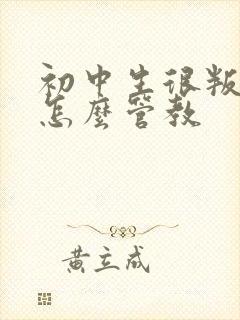 初中生很叛
怎麼管教
黃立成